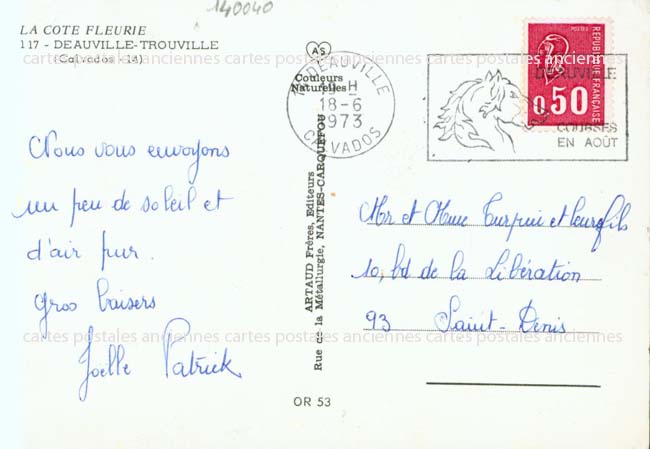 140040
LA COTE FLEURIE
117 - DEAUVILLE-TROUVILLE
(Calvados - 14)
cartes postales anciennes cartes postales anciennes cartes postales anciennes
Nous vous envoyons
un peu de soleil et
d'air pur.
Gros baisers
Joëlle Patrick
AS
Couleurs
Naturelles
ARTAUD Frères, Editeurs
Rue de la Métallurgie, NANTES-CARQUEFOU
OR 53
DEAUVILLE
H
18-6
1973
CALVADOS
DEAUVILLE
COURSES
EN AOÛT
POSTES
REPUBLIQUE FRANÇAISE
0,50
Mr et Mme Turpin et leurs fils
10, bd de la Libération
93 Saint-Denis
cartes postales anciennes cartes postales anciennes cartes postales anciennes